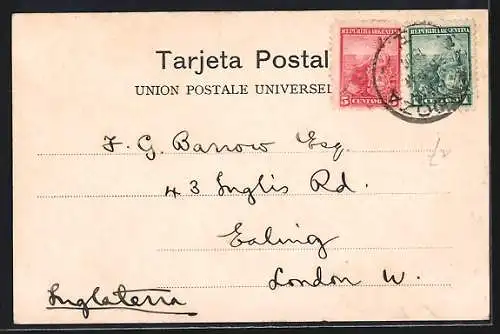 REPUBLICA ARGENTINA
REPUBLICA ARGENTINA
Tarjeta Postal
5 CENTAVOS
UNION POSTALE UNIVERSEL
F. G. Barrow Esq.
43 Inglis Rd.
Ealing
London W.
Inglaterra